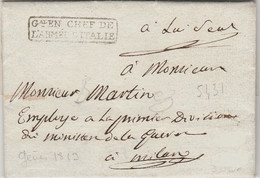 Gal EN CHEF DE
L'ARMÉE D'ITALIE
à lui seul
à Monsieur
Monsieur Martin
5431
Employé à la premier Division
du ministere de la Guerre
à milan